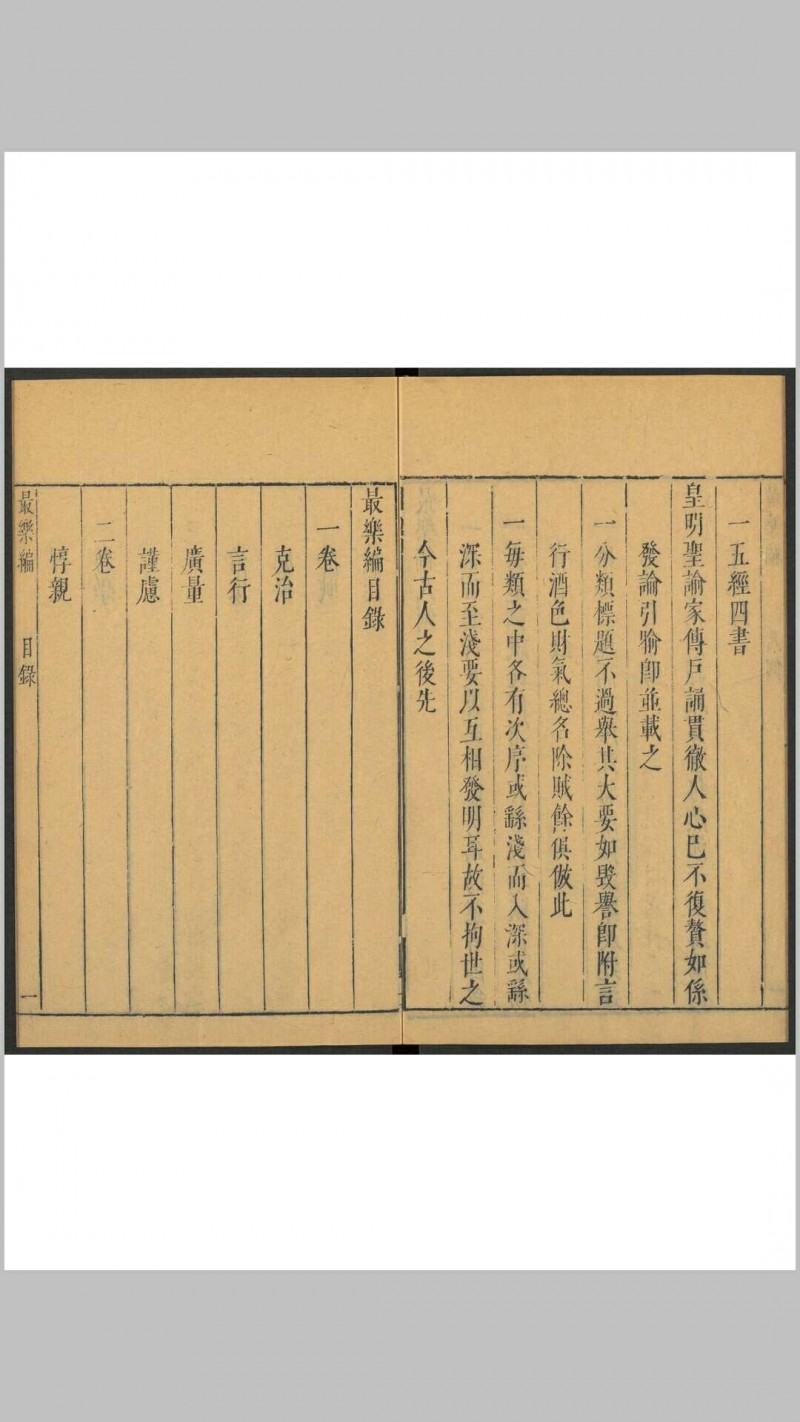 一五經四書
皇明聖諭家傳戶誦貫徹人心巳不復贅如係
發論引喻卽並載之
一分類標題不過舉其大要如毀譽卽附言
行酒色財氣總名除賊餘俱倣此
一每類之中各有次序或繇淺而入深或繇
深而至淺要以互相發明耳故不拘世之
今古人之後先
最樂編目錄
一卷
克治
言行
廣量
謹慮
二卷
惇親
最樂編 目錄 一